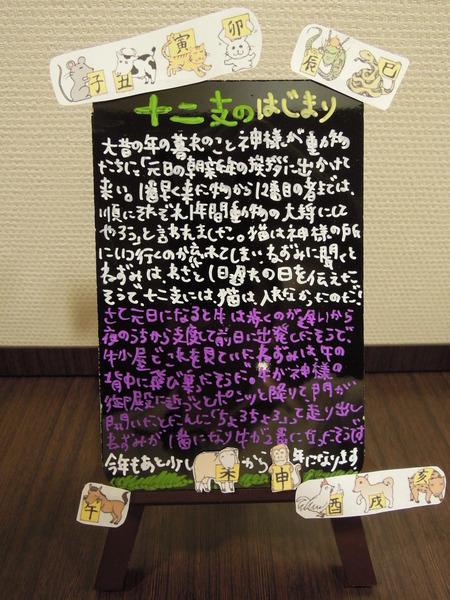 子 丑 寅 卯
辰 巳
十二支のはじまり
大昔の年の暮れのこと神様が動物
たちに「元日の朝新年の挨拶に出かけて
来い。1番早く来た物から12番目の者までは、
順にそれぞれ1年間動物の大将にして
やろう」と言われました。猫は神様の所
にいつ行くのか忘れてしまい、ねずみに聞くと
ねずみは、わざと1日遅れの日を伝えた
そうで、十二支には、猫は、入れなかったのだ!
さて元日になると牛は歩くのが遅いから
夜のうちから支度して前日に出発したそうで、
牛小屋でこれを見ていたねずみは牛の
背中に飛び乗たそうだ。牛が神様の
御殿に近づくとポンッと降りて門が
開いたとたんに「ちょろちょろ」って走り出し
ねずみが1番になり牛が2番になったそうです
今年もあと少し 未 から 申 年になります
午
酉 戌 亥